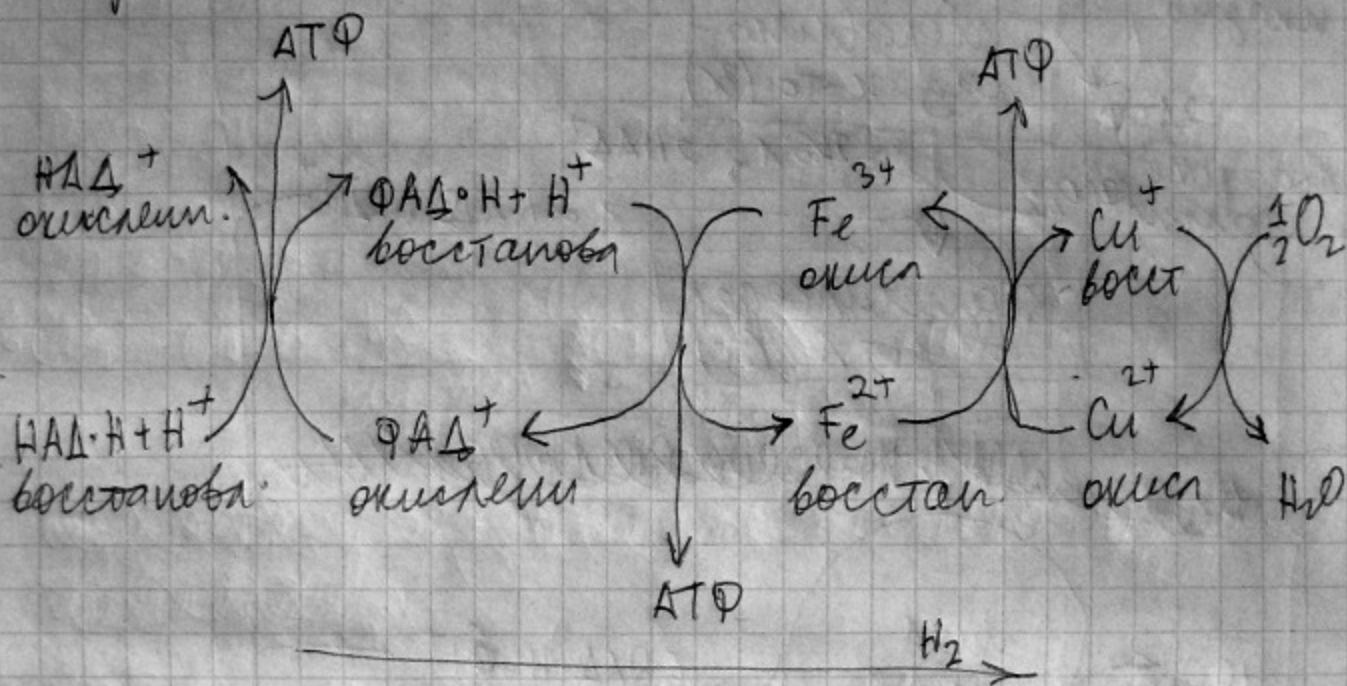 АТФ
АТФ
НАД⁺
окисленн.
ФАД•Н + Н⁺
восстановл
Fe³⁺
окисл
Cu⁺
восст
½O₂
НАД•Н + Н⁺
восстановл.
ФАД⁺
окисленн
Fe²⁺
восстан.
Cu²⁺
окисл
H₂O
АТФ
H₂